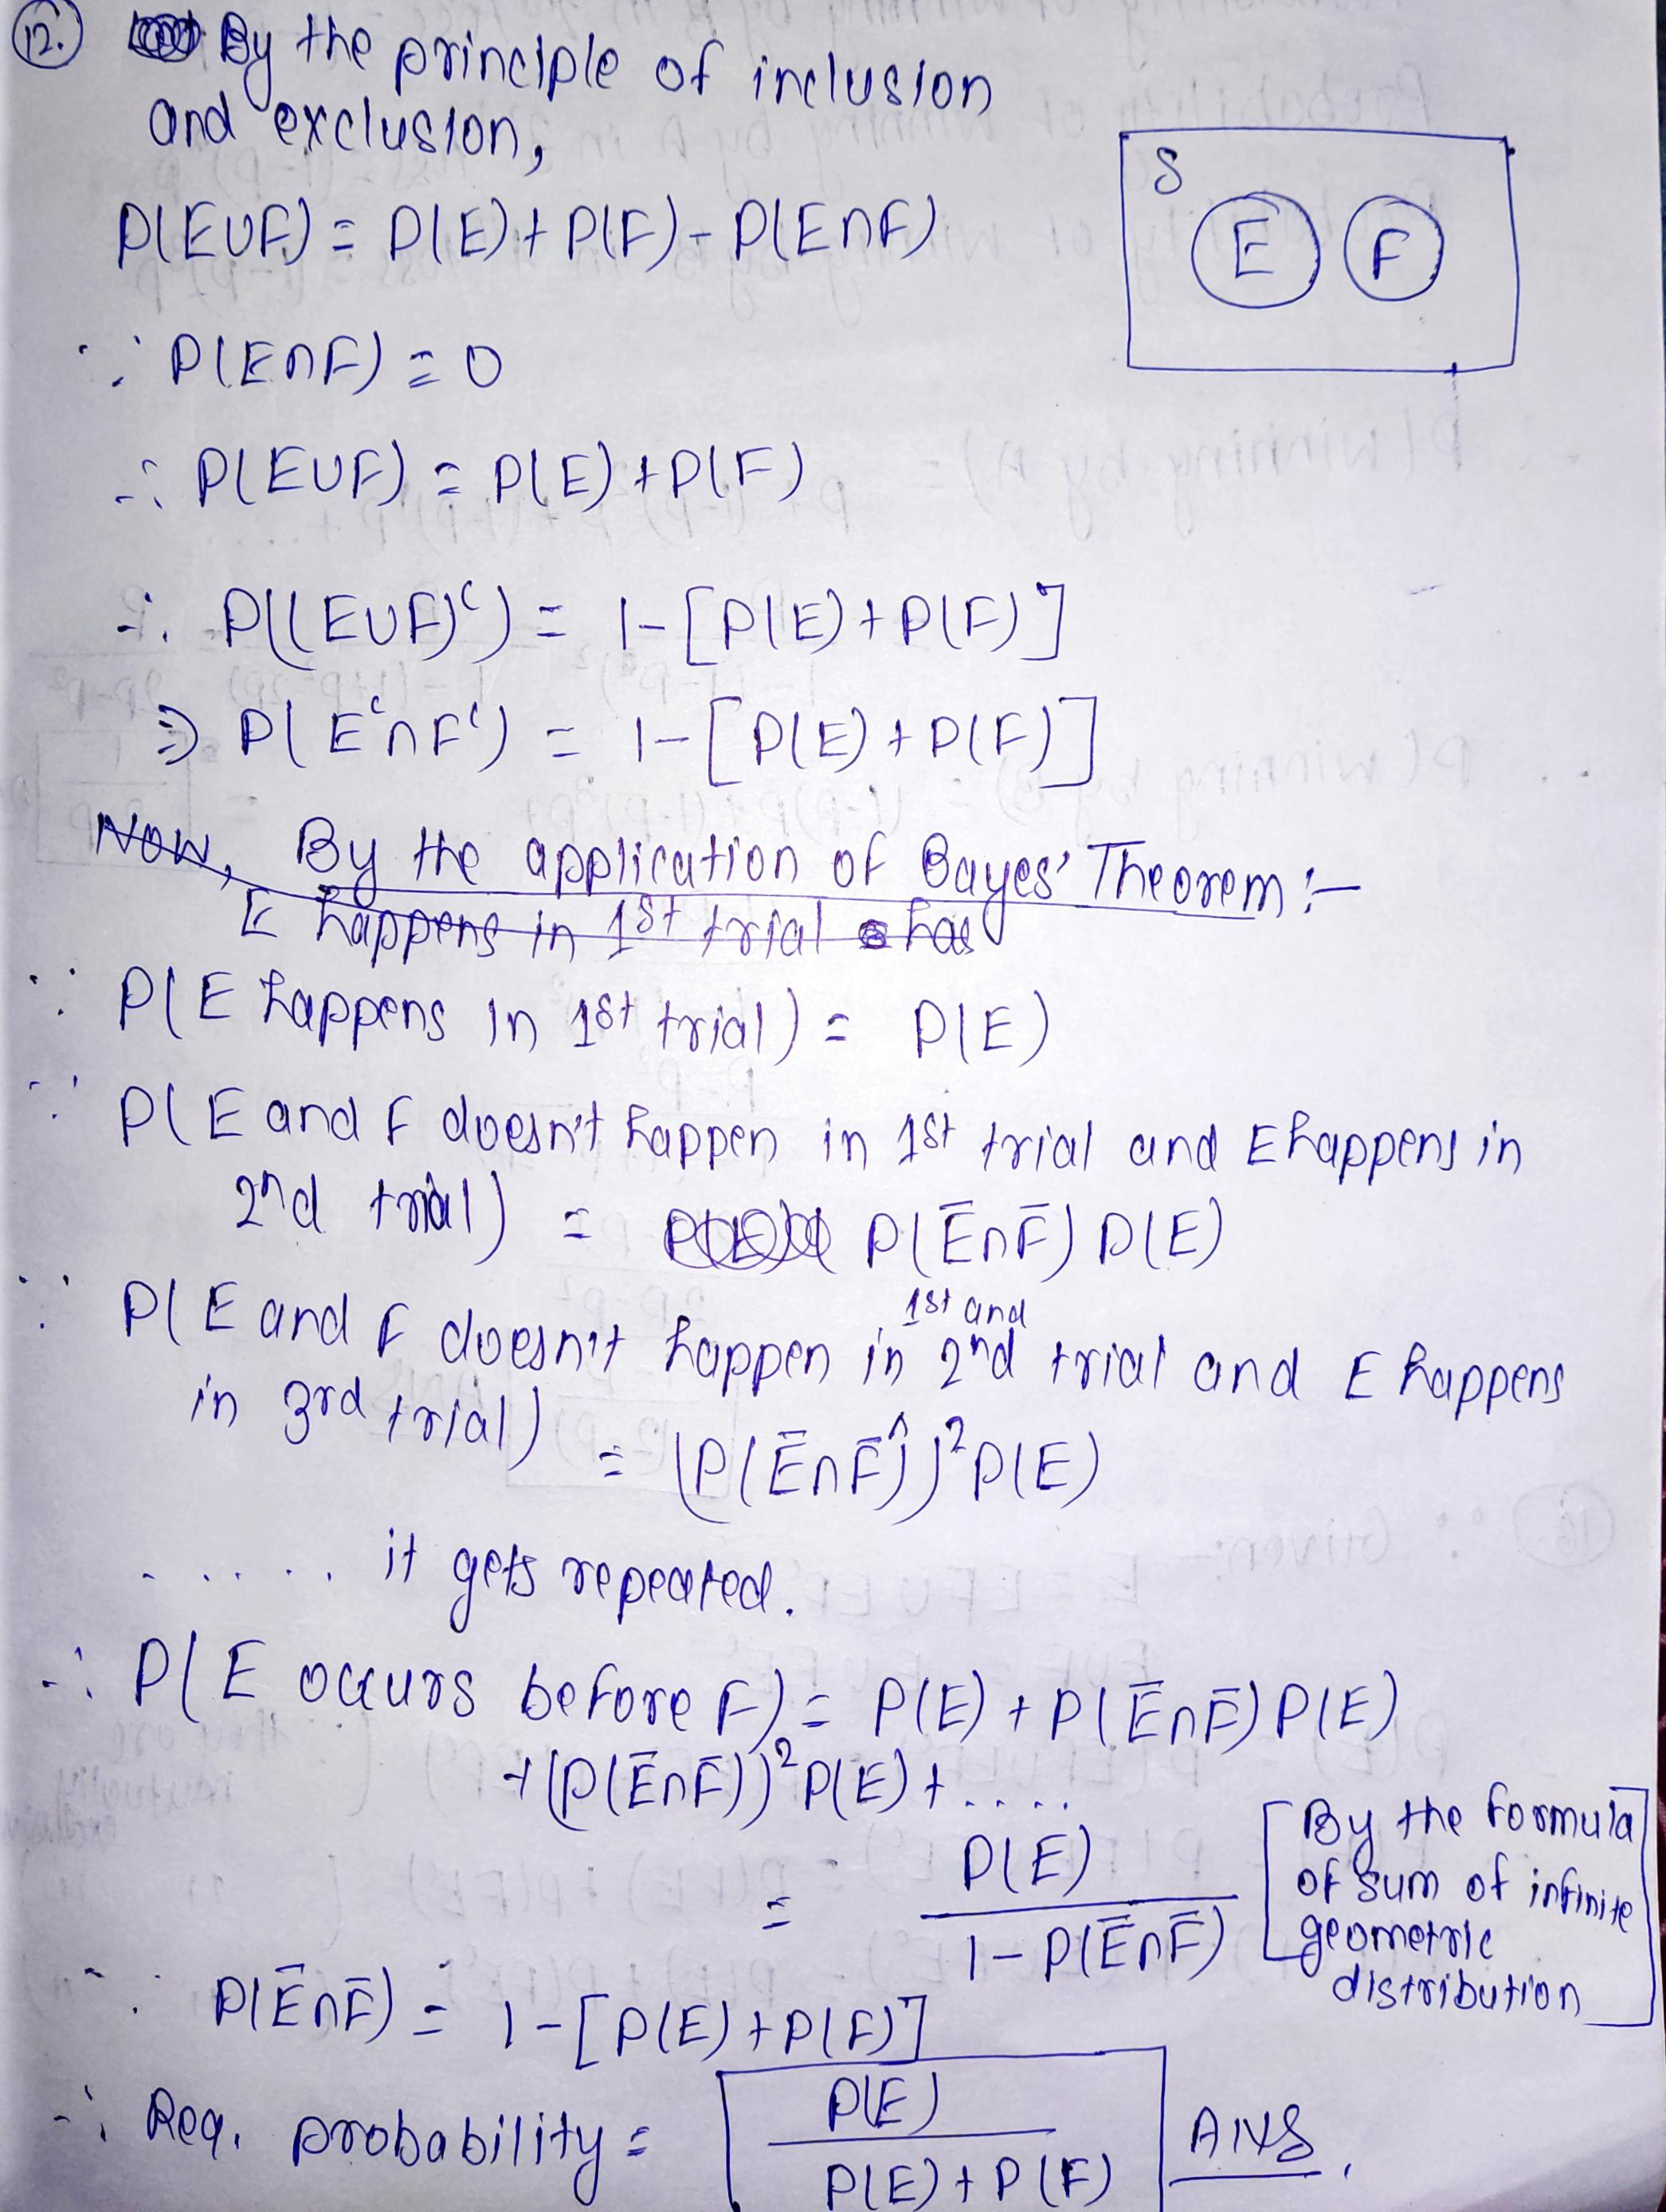 12. By the principle of inclusion
and exclusion,
S
E F
P(E∪F) = P(E) + P(F) - P(E∩F)
∵ P(E∩F) = 0
∴ P(E∪F) = P(E) + P(F)
∴ P((E∪F)ᶜ) = 1-[P(E) + P(F)]
⇒ P(Eᶜ∩Fᶜ) = 1-[P(E) + P(F)]
Now, By the application of Bayes' Theorem :-
E happens in 1st trial has
∵ P(E happens in 1st trial) = P(E)
∵ P(E and F doesn't happen in 1st trial and E happens in
2nd trial) = P(Ē∩F̄) P(E)
∵ P(E and F doesn't happen in 1st and 2nd trial and E happens
in 3rd trial) = (P(Ē∩F̄))²P(E)
..... it gets repeated.
∴ P(E occurs before F) = P(E) + P(Ē∩F̄) P(E)
+(P(Ē∩F̄))²P(E) + ....
= P(E) / 1-P(Ē∩F̄)
[By the formula
of sum of infinite
geometric
distribution]
∵ P(Ē∩F̄) = 1-[P(E) + P(F)]
∴ Req. probability = P(E) / P(E) + P(F) ANS.